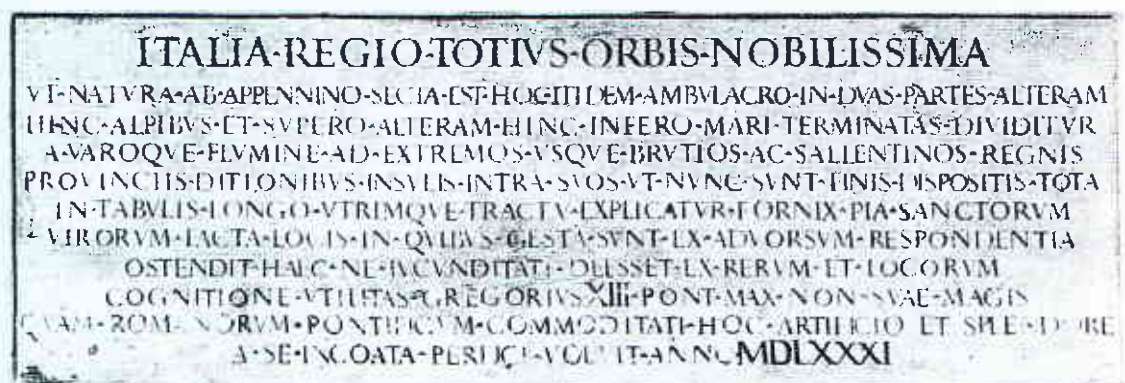 ITALIA·REGIO·TOTIVS·ORBIS·NOBILISSIMA
VT·NATVRA·AB·APPENNINO·SECTA·EST·HOC·ITIDEM·AMBVLACRO·IN·DVAS·PARTES·ALTERAM
HINC·ALPIBVS·ET·SVPERO·ALTERAM·HINC·INFERO·MARI·TERMINATAS·DIVIDITVR
A·VAROQVE·FLVMINE·AD·EXTREMOS·VSQVE·BRVTIOS·AC·SALLENTINOS·REGNIS
PROVINCIIS·DITIONIBVS·INSVLIS·INTRA·SVOS·VT·NVNC·SVNT·FINIS·DISPOSITIS·TOTA
IN·TABVLIS·LONGO·VTRIMQVE·TRACTV·EXPLICATVR·FORNIX·PIA·SANCTORVM
VIRORVM·FACTA·LOCIS·IN·QVIBVS·GESTA·SVNT·EX·ADVORSVM·RESPONDENTIA
OSTENDIT·HAEC·NE·IVCVNDITATI·DEESSET·EX·RERVM·ET·LOCORVM
COGNITIONE·VTILITAS·GREGORIVS·XIII·PONT·MAX·NON·SVAE·MAGIS
QVAM·ROMANORVM·PONTIFICVM·COMMODITATI·HOC·ARTIFICIO ET SPLENDORE
A·SE·INCOATA·PERFICI·VOLVIT·ANNO·MDLXXXI